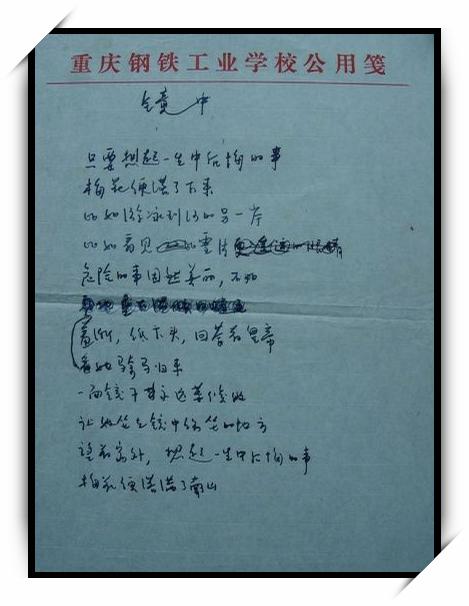 重庆钢铁工业学校公用笺
镜中
只要想起一生中后悔的事
梅花便落了下来
比如游泳到河的另一岸
比如看见
危险的事固然美丽,不如
羞惭,低下头,回答着皇帝
看她骑马归来
一面镜子永远等候她
让她坐到镜中常坐的地方
望着窗外,想起一生中后悔的事
梅花便落满了南山